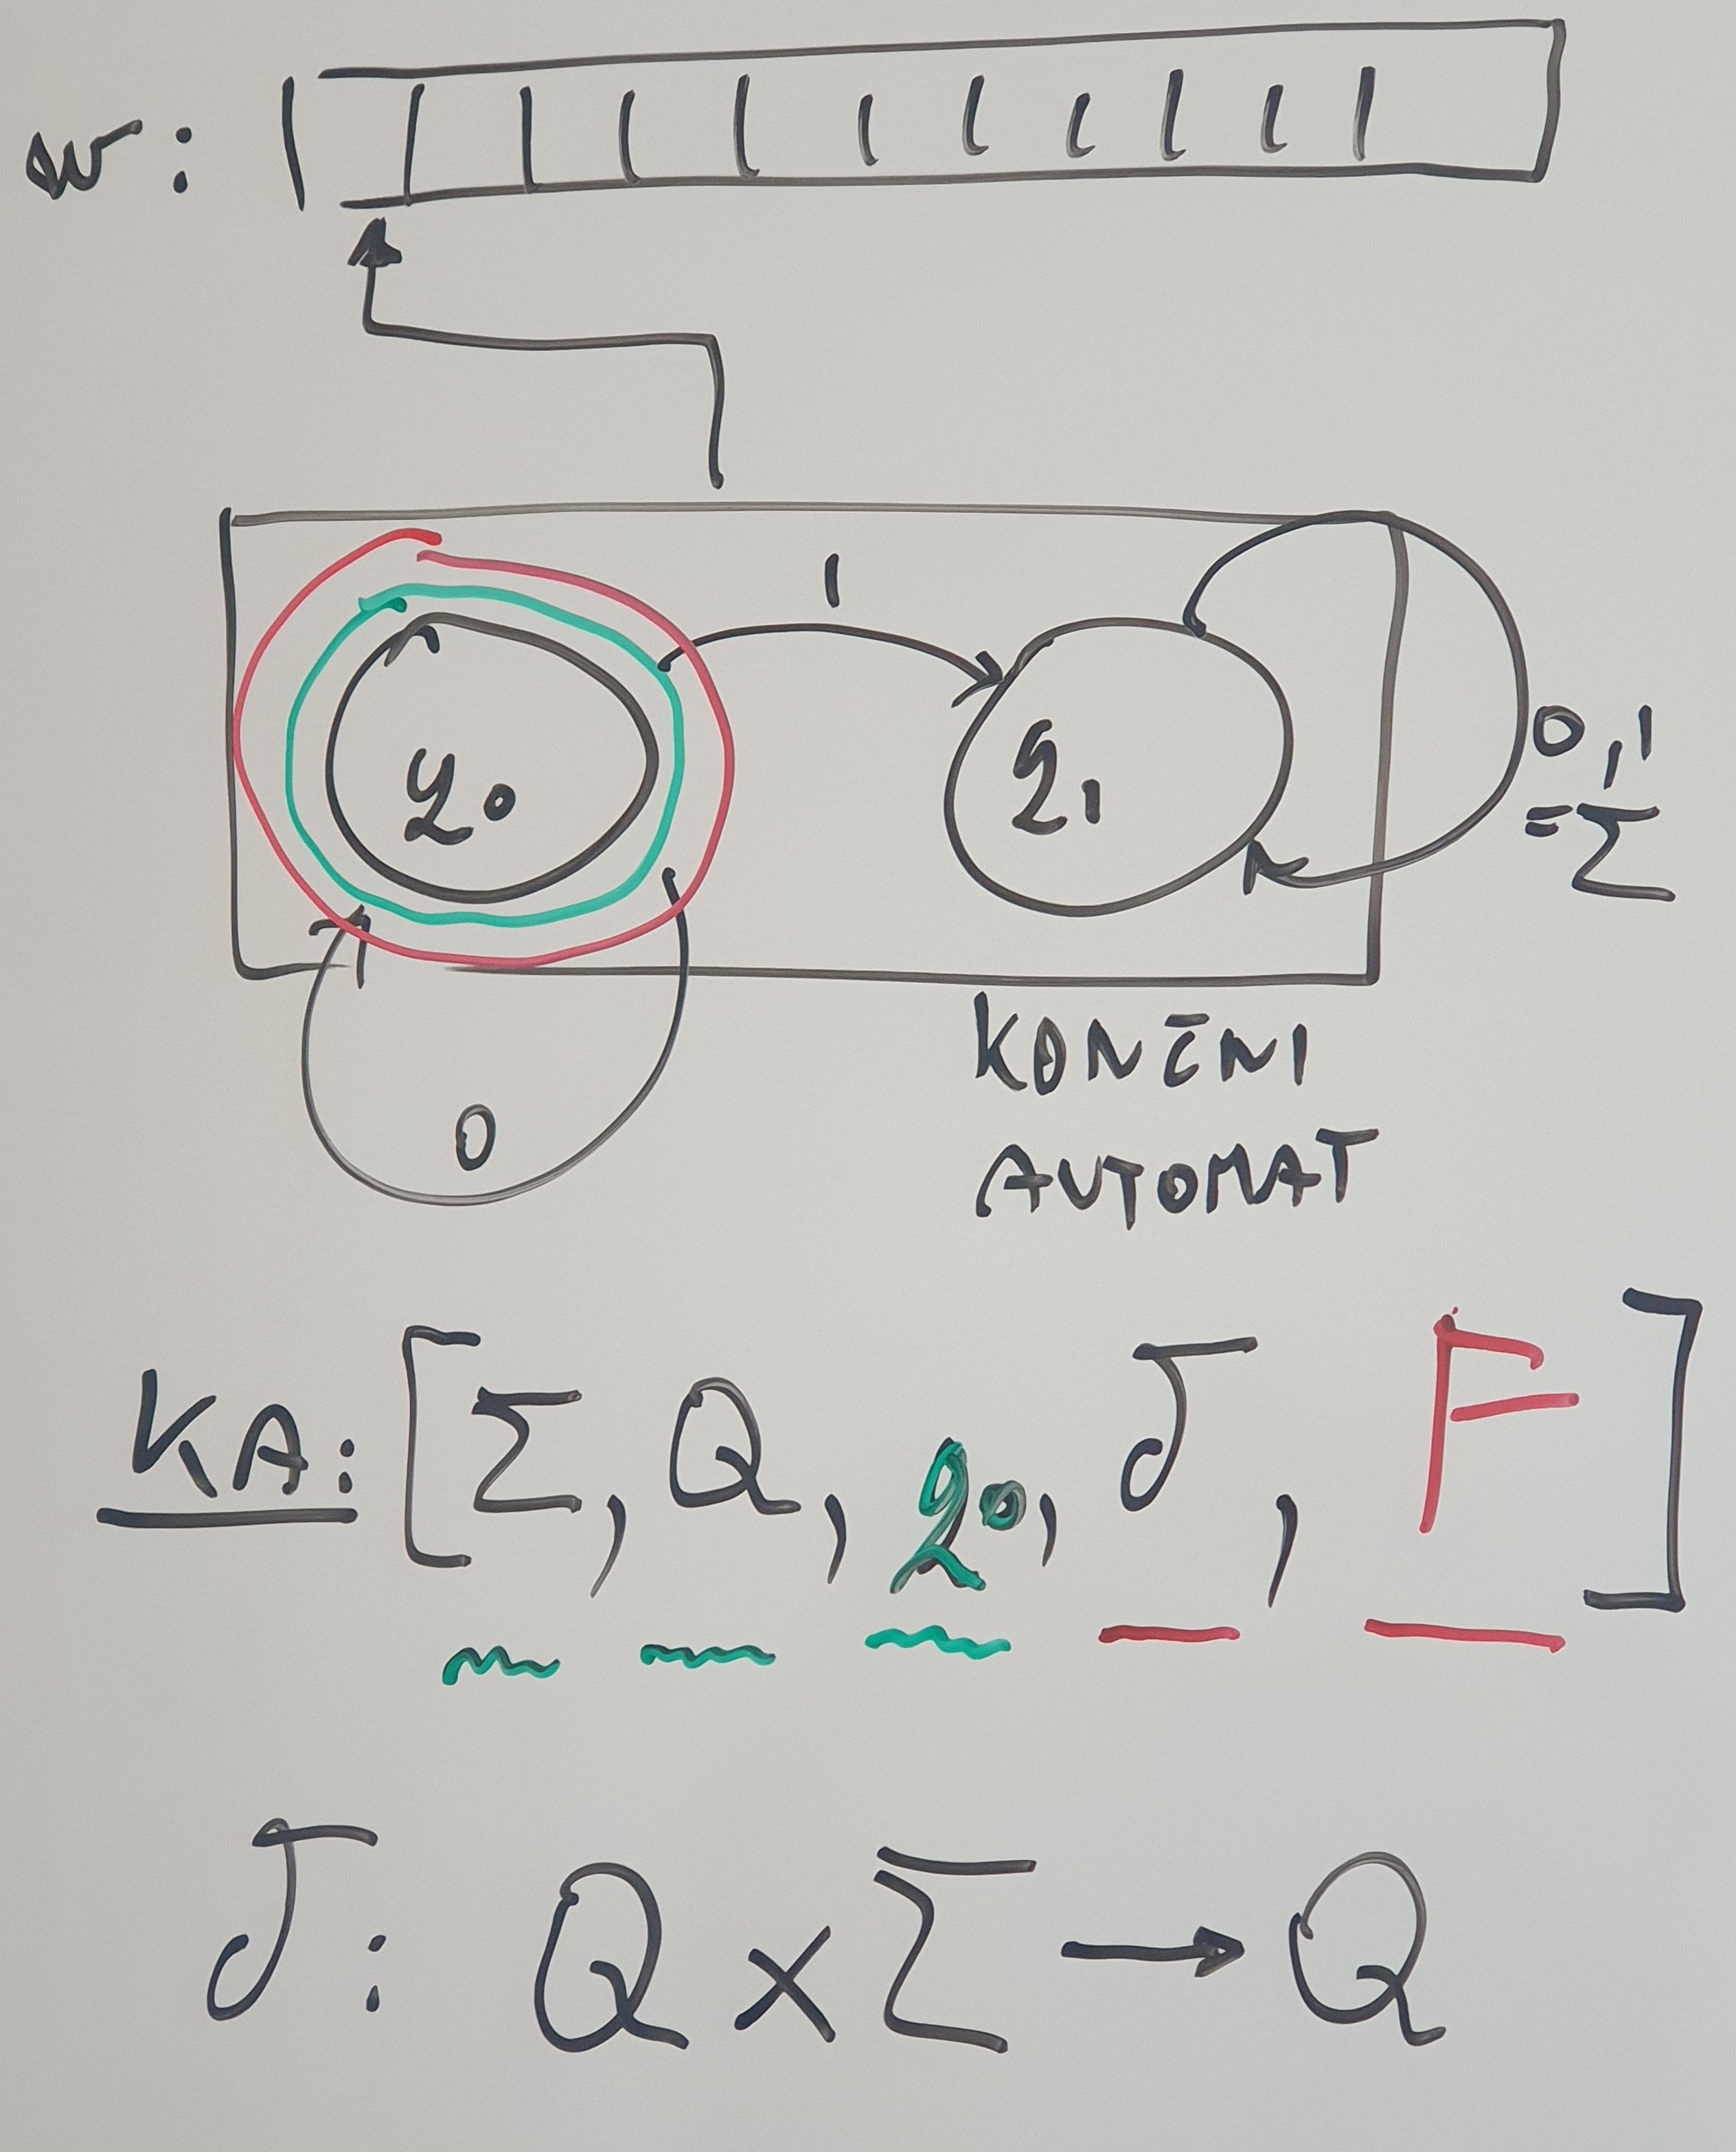 w:
1
q₀
q₁
0,1
=Σ
0
KONČNI
AVTOMAT
KA: [Σ, Q, q₀, δ, F]
δ: Q × Σ → Q